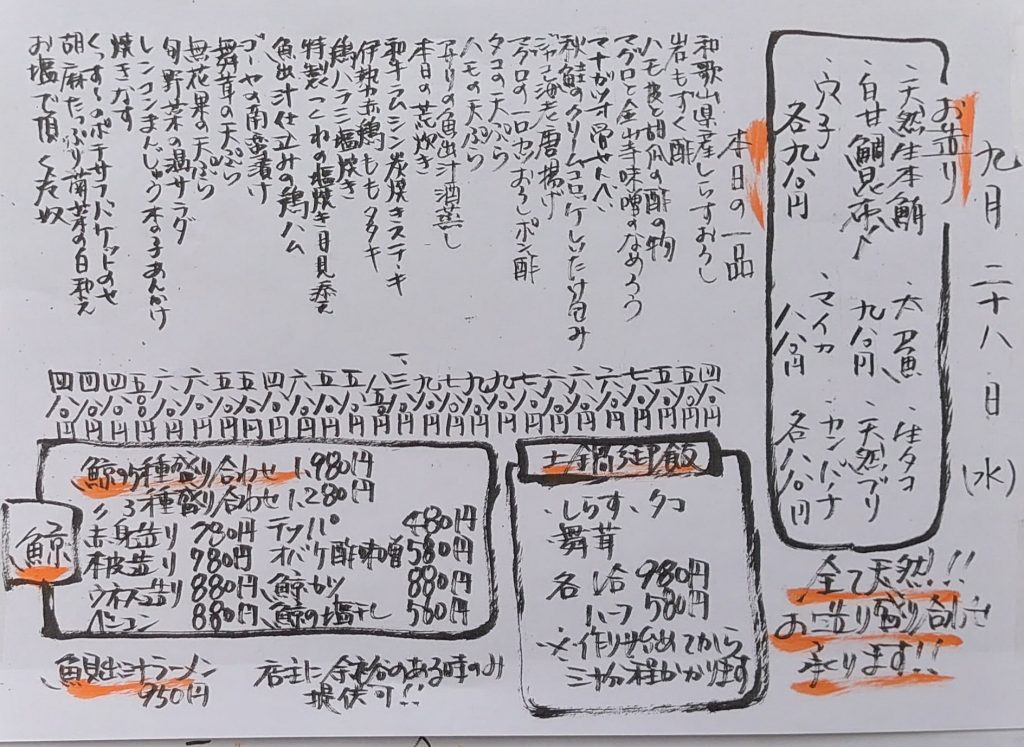 九月二十八日(水)
お造り
天然生本鮪
白甘鯛昆布〆
穴子
各九八〇円
太刀魚
九八〇円
マイカ
八八〇円
生タコ
天然ブリ
カンパチ
各八八〇円
全て天然!!
お造り盛り合わせ
承ります!!
本日の一品
和歌山県産しらすおろし
岩もずく酢
ハモ皮と胡瓜の酢の物
マグロと金山寺味噌のなめろう
マナガツオ骨せんべい
秋鮭のクリームコロッケしいたけ包み
ジャコ海老唐揚げ
マグロの一口カツおろしポン酢
タコの天ぷら
ハモの天ぷら
アサリの魚出汁酒蒸し
本日の荒炊き
和牛ラムシン炭焼きステーキ
伊勢赤鶏ももタタキ
鶏ハラミ塩焼き
特製つくねの塩焼き目見添え
魚出汁仕立みの鶏ハム
ゴーヤの南蛮漬け
舞茸の天ぷら
無花果の天ぷら
旬野菜の温サラダ
レンコンまんじゅう木の子あんかけ
焼きなす
くんすーのポテサラバケットのせ
胡麻たっぷり菊菜の白和え
お塩で頂く冷奴
鯨
鯨の5種盛り合わせ 1,980円
〃 3種盛り合わせ 1,280円
赤身造り 780円
本皮造り 980円
ウネス造り 880円
ベーコン 880円
テッパ 480円
オバケ酢味噌 580円
鯨カツ 880円
鯨の塩干し 560円
土鍋御飯
しらす、タコ
舞茸
各1合 980円
ハーフ 580円
※作り始めてから
三十分程かかります
魚貝出汁ラーメン
950円
店主に余裕のある時のみ
提供可!!